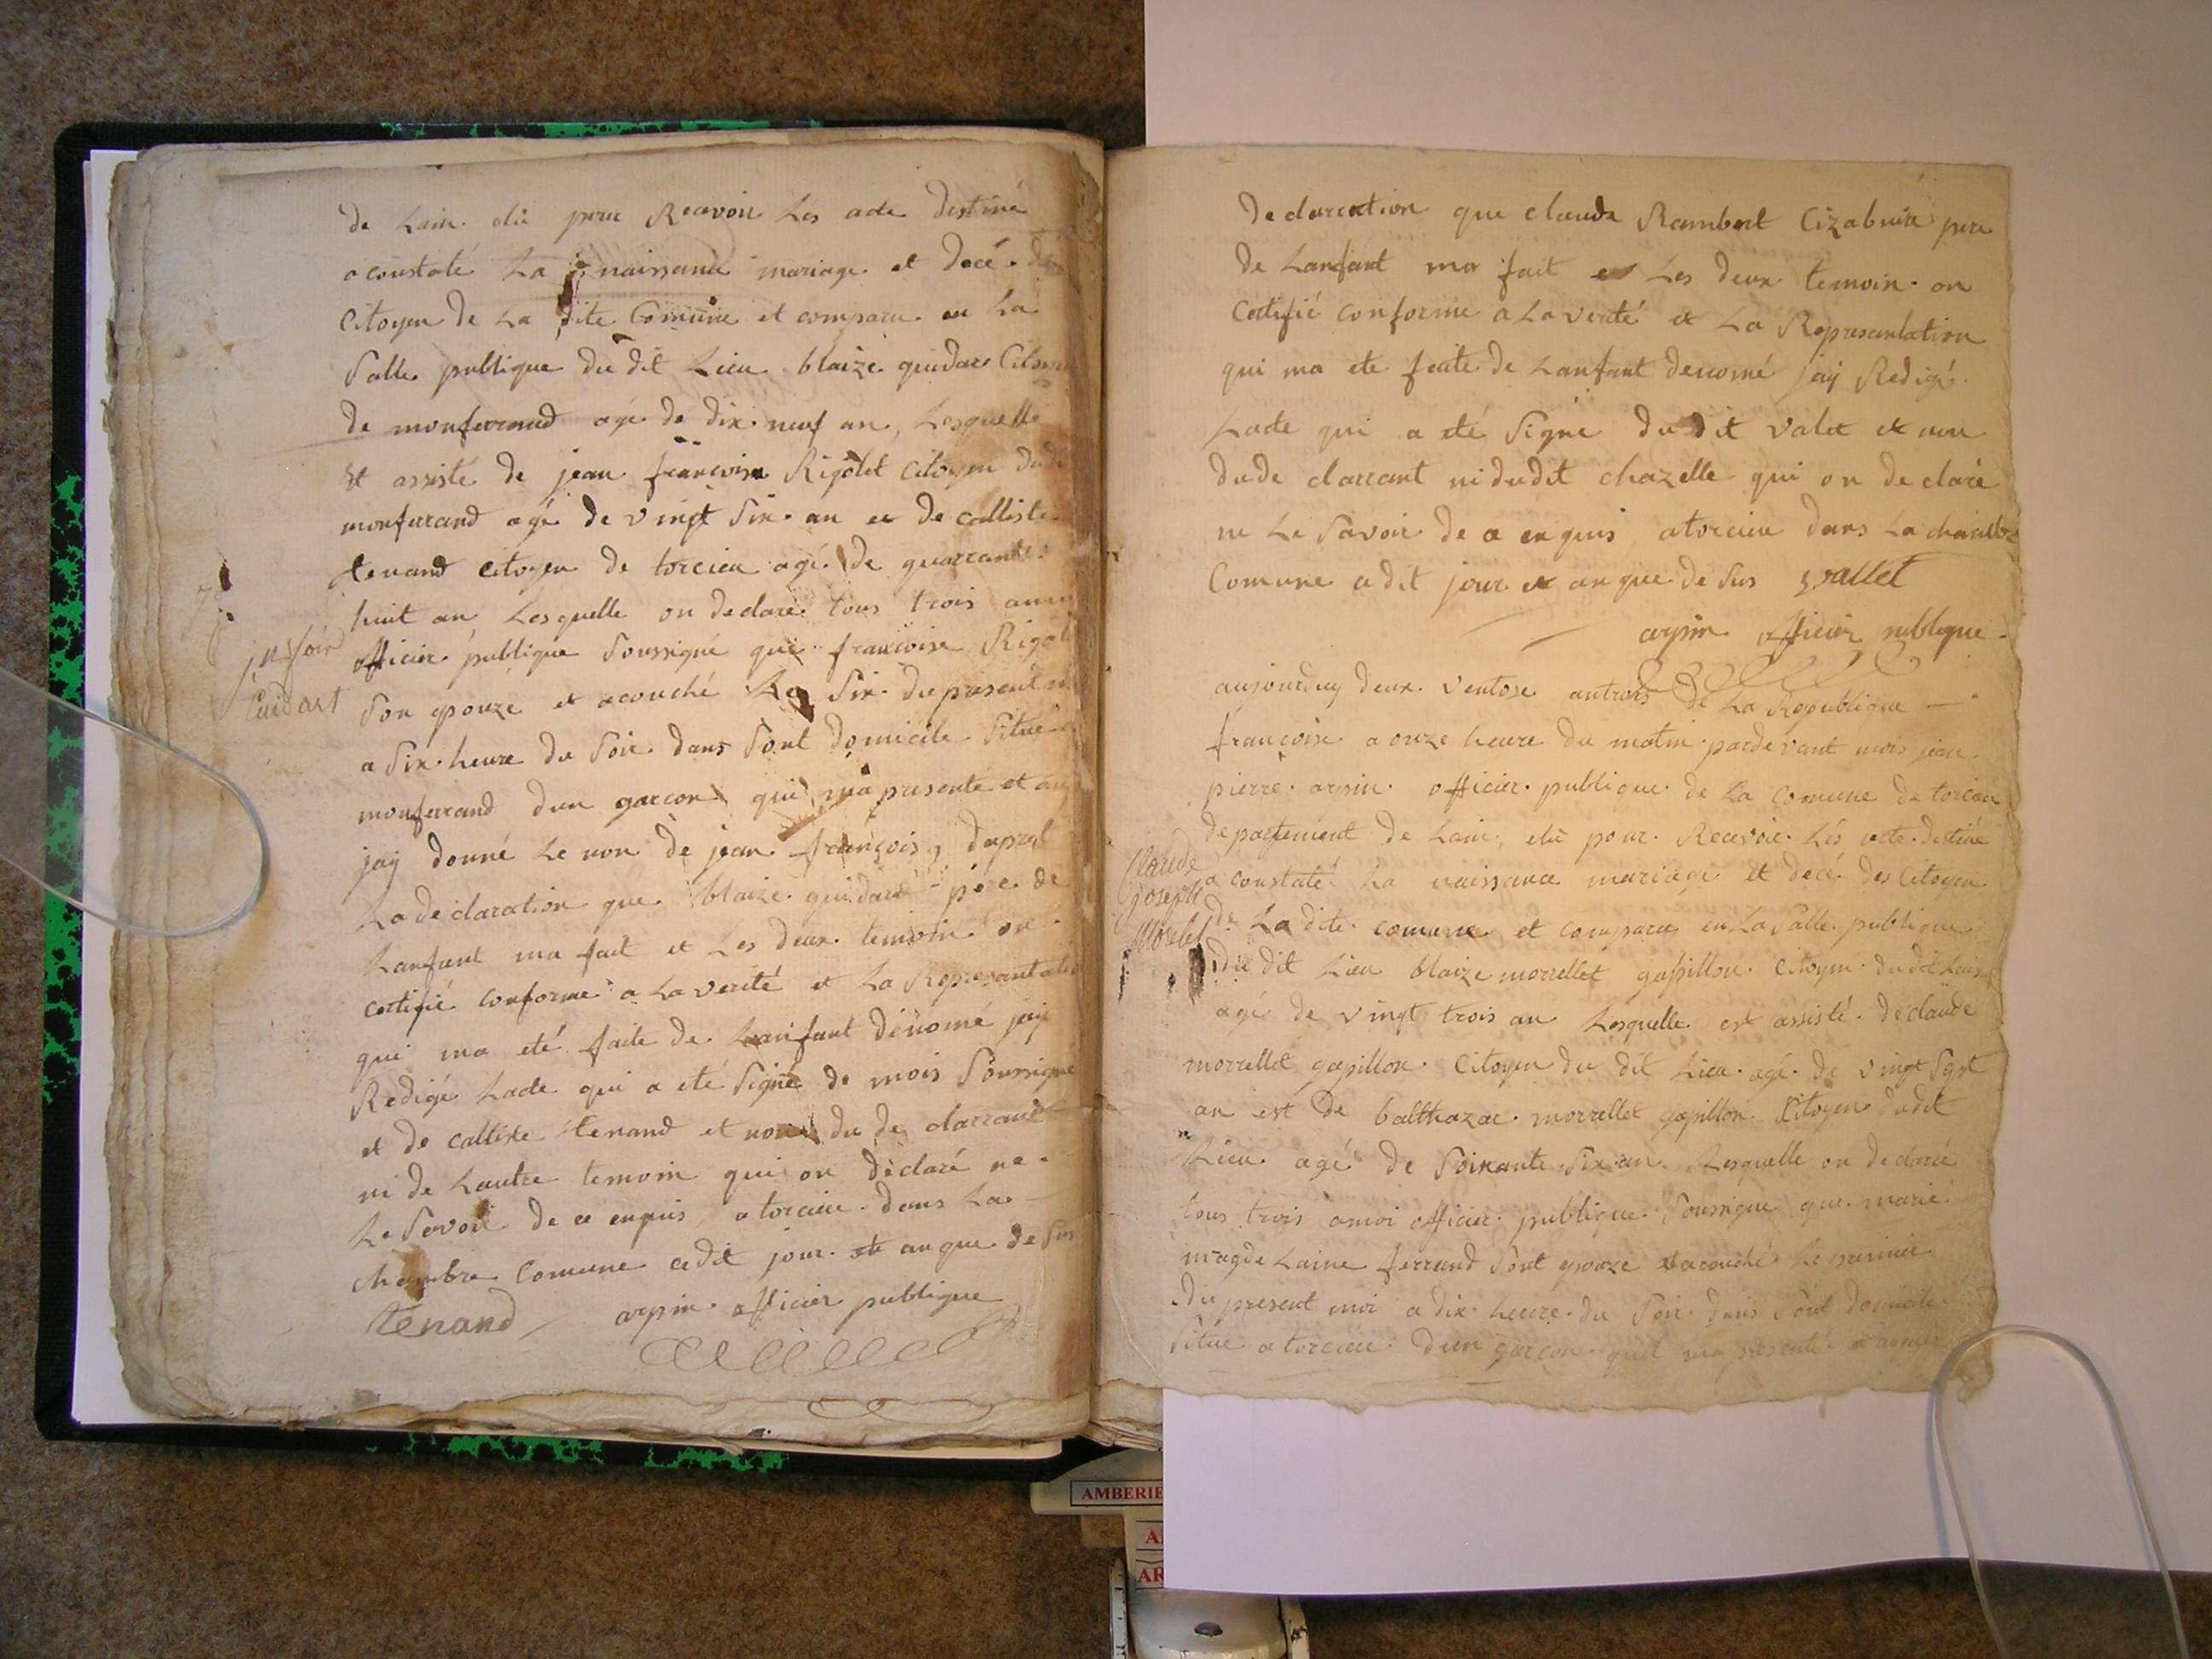 de Lain elu pour Recevoir Les acte destiné
a constaté La naissance mariage et décé des
Citoyen de La dite Comune et comparu en La
Salle publique du dit Lieu blaize guidare Citoyen
de monferrand agé de dix neuf an, Lesquelle
Et assisté de jean francoise Rigolet Citoyen dudi
monferrand agé de vingt Six an et de calliste
tenand citoyen de torcieu agé de quarrante
huit an Lesquelle on declaré tous trois amoi
officier publique Soussigné que francoise Rigol
Son epouze et acouché Le Six du present m
a Six heure du Soir dans Sont domicile Situé a
monferrand dun garcon qui ma presenté et auq
jaÿ donné Le non de jean françois, daprest
La declaration que blaize guidare père de
Lanfant ma fait et Les deux temoin on
certifié conforme a La verité et La Representatio
qui ma eté faite de Lanfant dénomé jaÿ
Redigé Lacte qui a eté Signé de mois Soussigné
et de calliste tenand et non du de clarrant
ni de Lautre temoin qui on déclaré ne
Le Savoir de ce enquis a torcieu dans La
chambre Comune cedit jour et anque de Sus
tenand arpin officier publique
jn foir
Cuidart
declarration que claude Rambert Cizabuire pere
de Lanfant ma fait et Les deux temoin on
Certifié conforme a La verité et La Represantation
qui ma ete faite de Lanfant denomé jaÿ Redigé
Lacte qui a eté Signé du dit valet et non
dude clarrant ni dudit chazelle qui on declaré
ne Le Savoir de ce enquis atorcieu dans La chambre
Comune adit jour et anque de Sus vallet
arpin officier publique
aujourduy deux ventose antrois de La Republique
françoise a onze heure du matin pardevant mois jean
pierre arpin officier publique de La Comune de torcieu
departement de Lain, elu pour Recevoir Les acte destiné
a constaté La naissance mariage et decé des Citoyen
de La dite comune et comparu en La Salle publique
du dit Lieu blaize morrellet gapillon Citoyen du dit Lieu
agé de vingt trois an Lesquelle est assisté de claude
morrellet gapillon Citoyen du dit Lieu agé de vingt Sept
an est de balthazac morrellet gapillon Citoyen dudit
Lieu agé de Soixante Six an Lesquelle on declaré
tous trois amoi officier publique Soussigné que marie
magdelaine ferrand Sont epouze et acouché Le premier
du present moi a dix heure du Soir dans Sont domicile
Situé a torcieu dun garcon quil ma presenté et auquel
Claude
joseph
Morelet
AMBERIE
A
AR